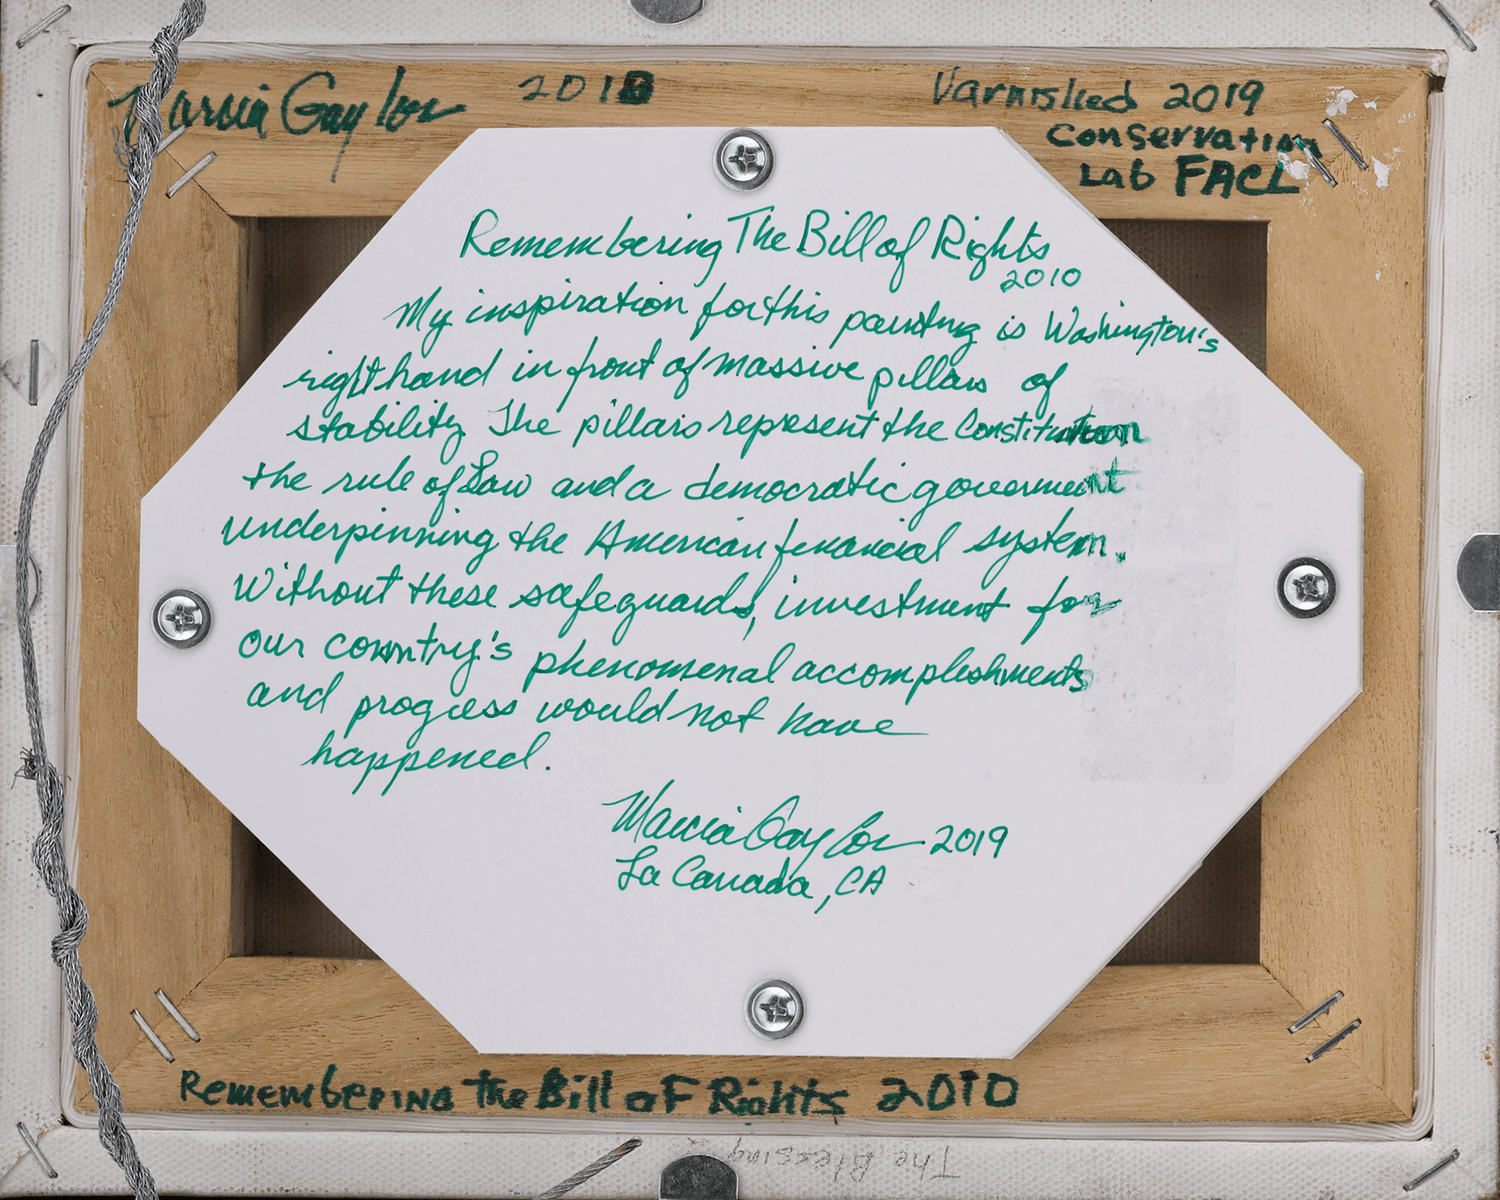 Marcia Gaylor 2010
Varnished 2019
Conservation
Lab FACL
Remembering The Bill of Rights
2010
My inspiration for this painting is Washington's
right hand in front of massive pillars of
stability. The pillars represent the Constitution
the rule of Law and a democratic government
underpinning the American financial system.
Without these safeguards, investment for
our country's phenomenal accomplishments
and progress would not have
happened.
Marcia Gaylor 2019
La Canada, CA
Remembering the Bill of Rights 2010
The Blessing